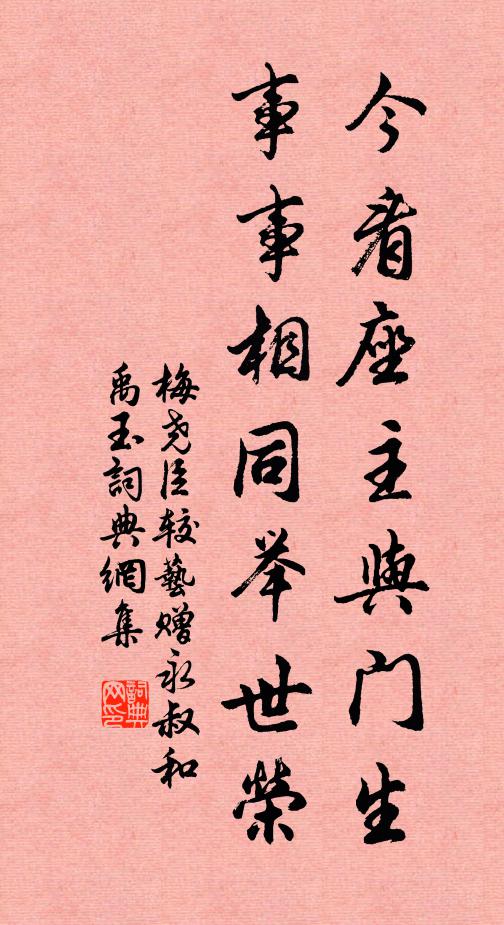 今看座主與门生
事事相同举世榮
梅尧臣较藝赠永叔和
禹玉詞典網集
詞典网印